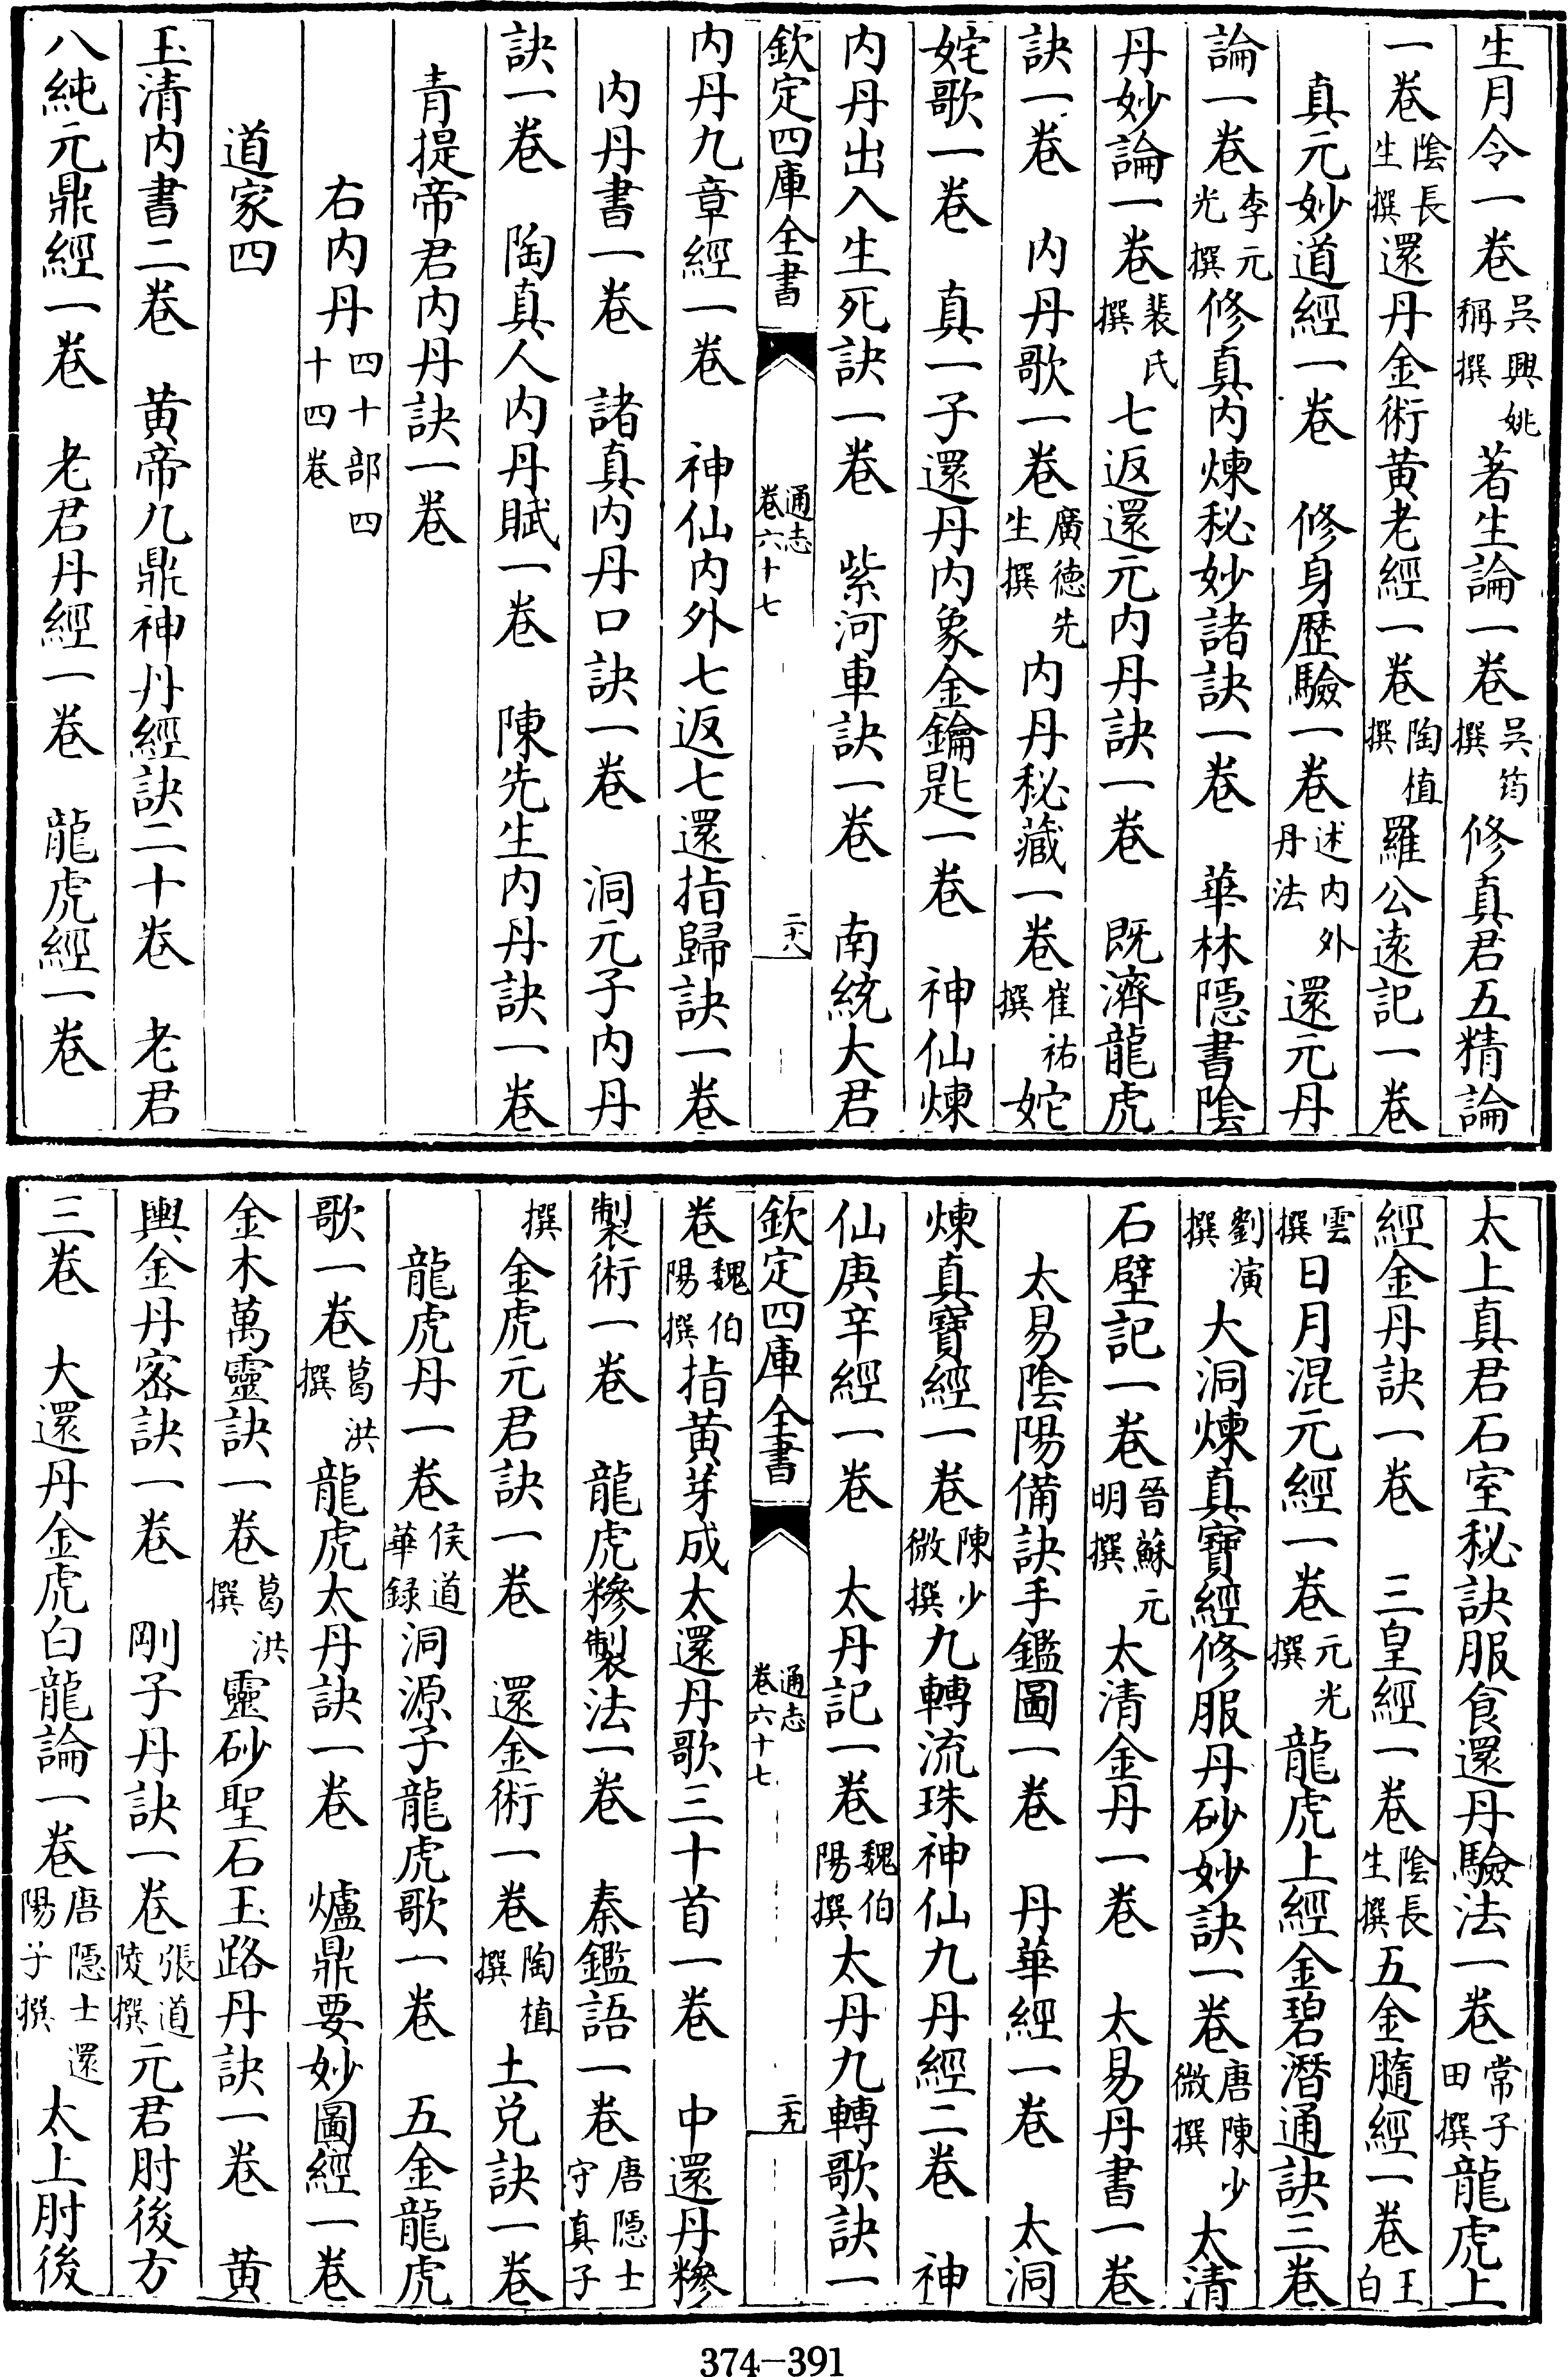 生月令一卷吳興姚稱撰著生論一卷吳筠撰修真君五精論
一卷陰長生撰還丹金術黄老經一卷陶植撰羅公遠記一卷
真元妙道經一卷　修身歴驗一卷述内外丹法還元丹
論一卷李元光撰修真内煉秘妙諸訣一卷　華林隠書陰
丹妙論一卷裴氏撰七返還元内丹訣一卷　既濟龍虎
訣一卷　内丹歌一卷廣徳先生撰内丹秘藏一卷崔祐撰姹
姹歌一卷　真一子還丹内象金鑰匙一卷　神仙煉
内丹出入生死訣一卷　紫河車訣一卷　南統大君
欽定四庫全書　通志卷六十七　二十八
内丹九章經一卷　神仙内外七返七還指歸訣一卷
内丹書一卷　諸真内丹口訣一卷　洞元子内丹
訣一卷　陶真人内丹賦一卷　陳先生内丹訣一卷
青提帝君内丹訣一卷
右内丹四十部四十四卷
道家四
玉清内書二卷　黄帝九鼎神丹經訣二十卷　老君
八純元鼎經一卷　老君丹經一卷　龍虎經一卷
太上真君石室秘訣服食還丹驗法一卷常子田撰龍虎上
經金丹訣一卷　三皇經一卷陰長生撰五金腦經一卷王白
雲撰日月混元經一卷元光撰龍虎上經金碧潛通訣三卷
劉演撰大洞煉真寶經修服丹砂妙訣一卷唐陳少微撰太清
石壁記一卷晉蘇元明撰太清金丹一卷　太易丹書一卷
太易陰陽備訣手鑑圖一卷　丹華經一卷　太洞
煉真寶經一卷陳少微撰九轉流珠神仙九丹經二卷　神
仙庚辛經一卷　太丹記一卷魏伯陽撰太丹九轉歌訣一
欽定四庫全書　通志卷六十七　二十九
卷魏伯陽撰指黄芽成太還丹歌三十首一卷　中還丹糝
製術一卷　龍虎糝製法一卷　秦鑑語一卷唐隠士守真子
撰金虎元君訣一卷　還金術一卷陶植撰土兌訣一卷
龍虎丹一卷侯道華録洞源子龍虎歌一卷　五金龍虎
歌一卷葛洪撰龍虎太丹訣一卷　爐鼎要妙圖經一卷
金木萬靈訣一卷葛洪撰靈砂聖石玉路丹訣一卷　黄
輿金丹宻訣一卷　剛子丹訣一卷張道陵撰元君肘後方
三卷　大還丹金虎白龍論一卷唐隠士還陽子撰太上肘後
374-391